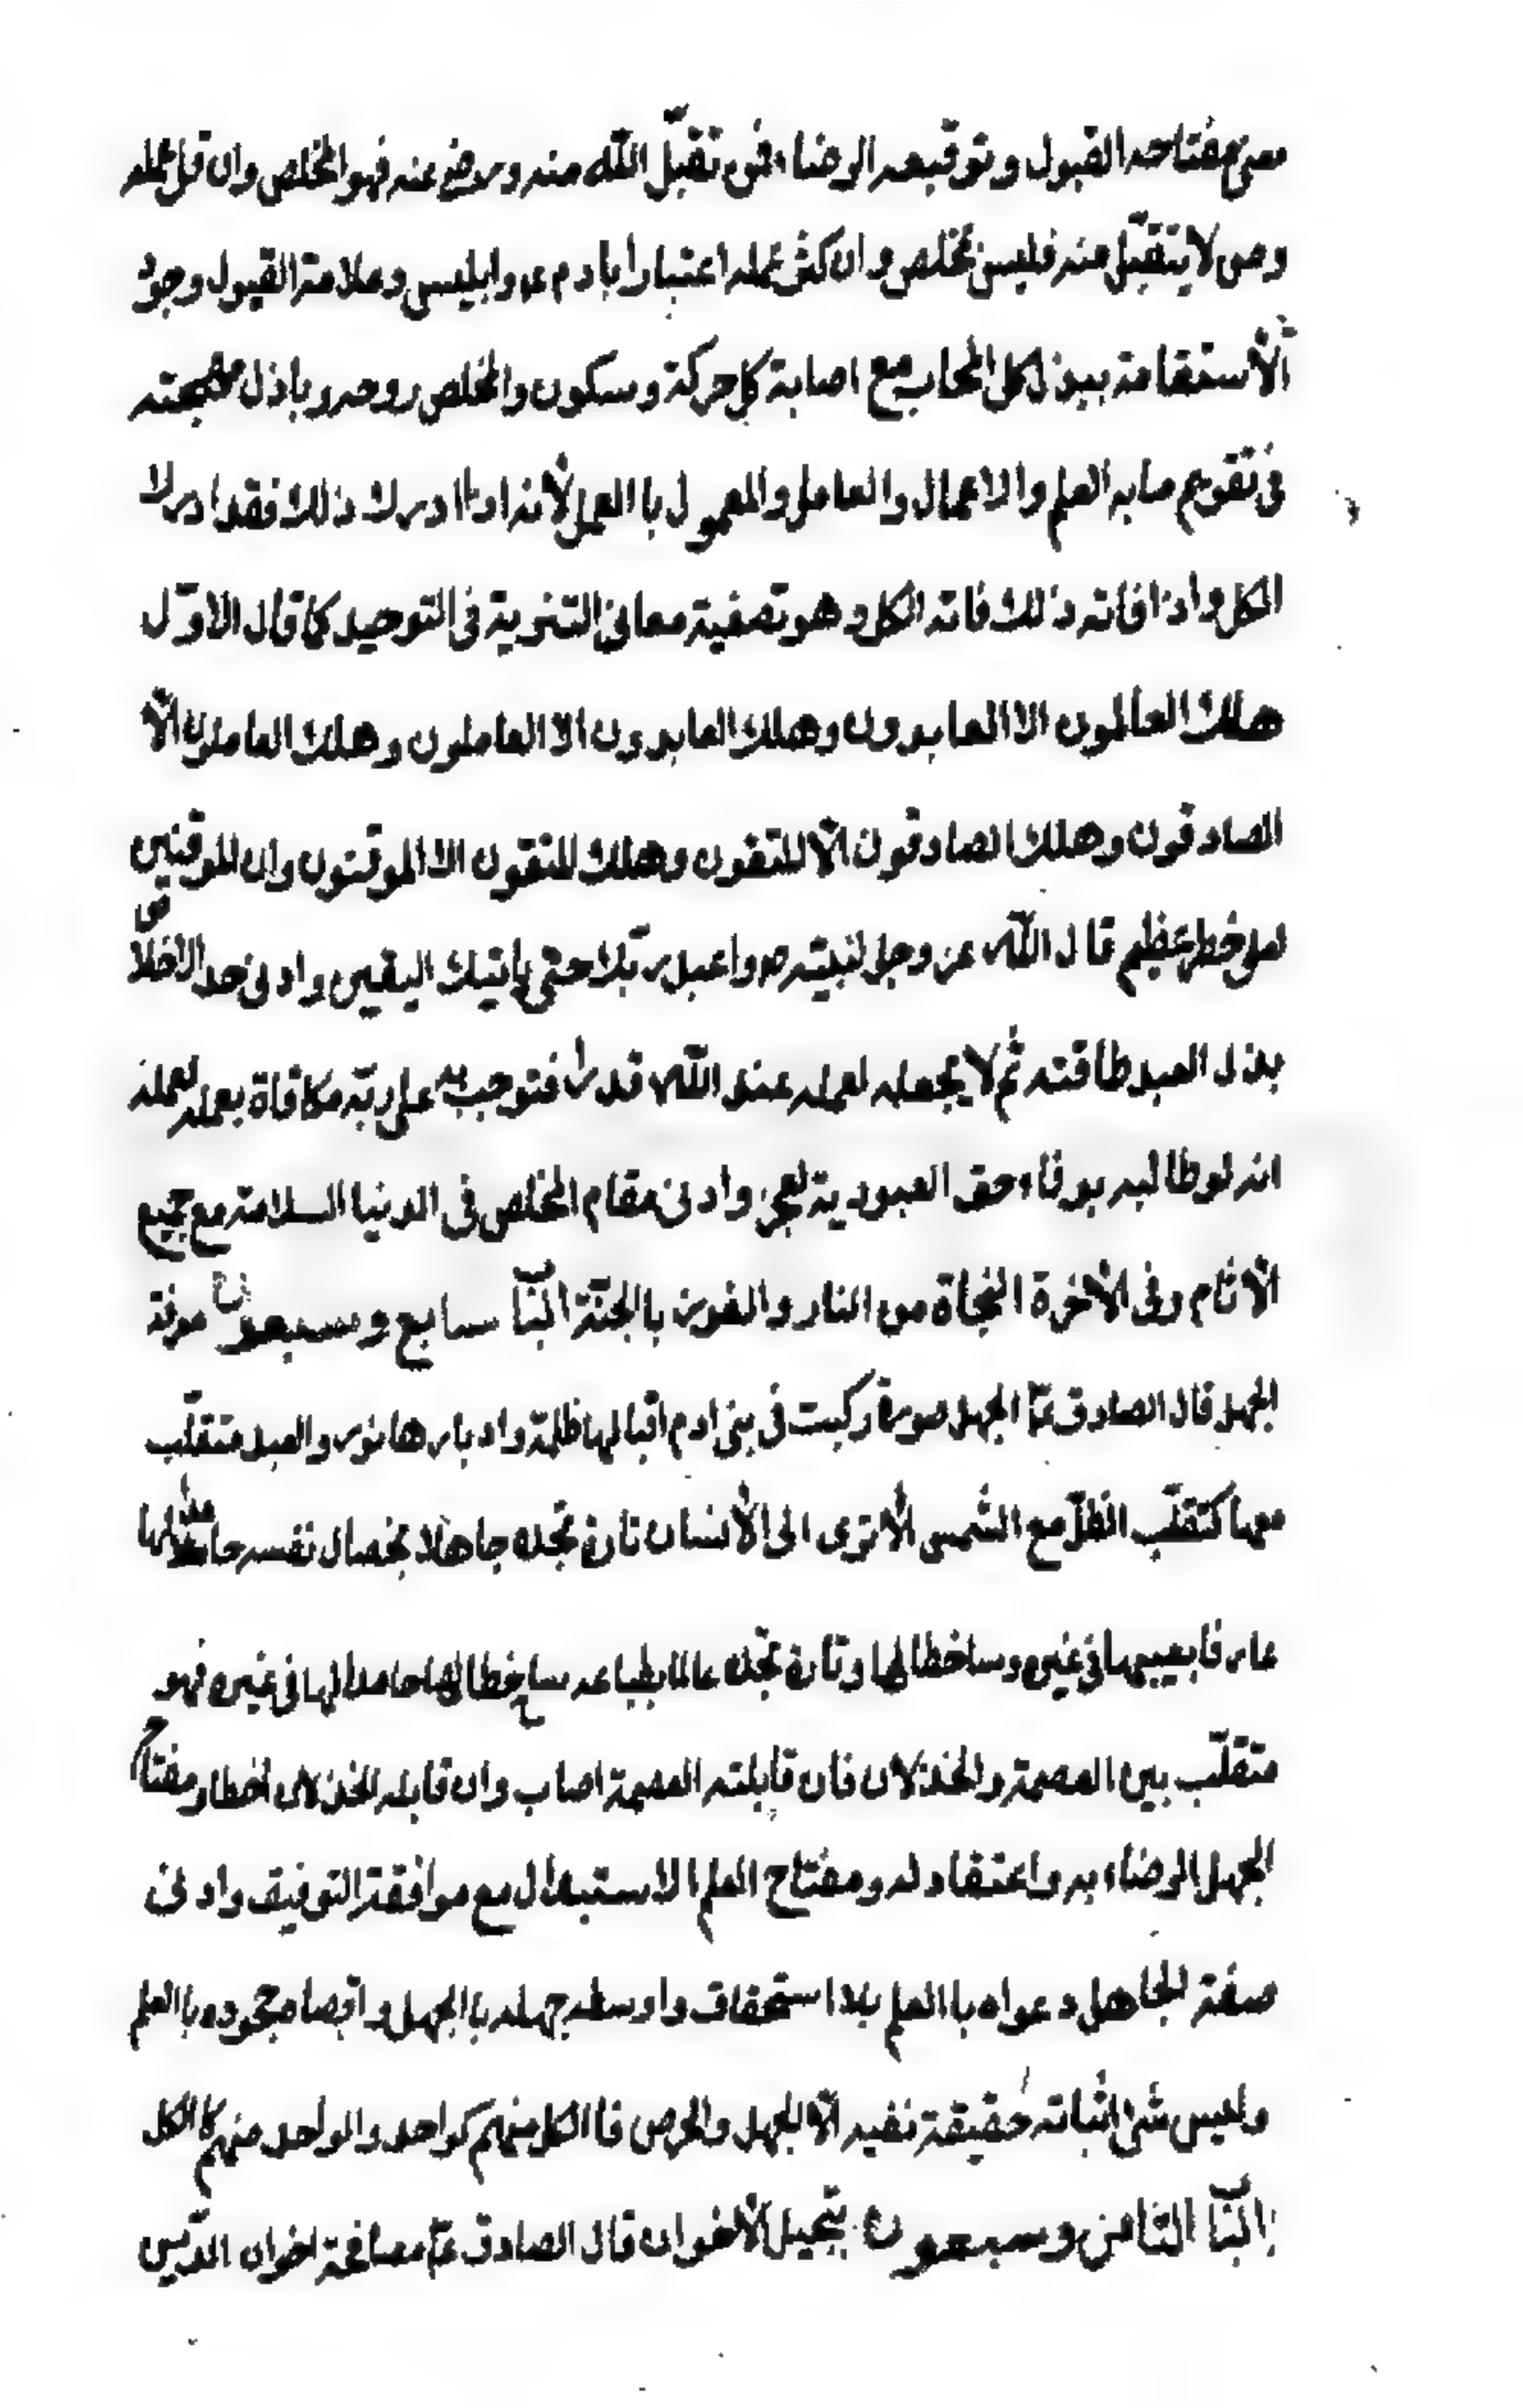 معنى مفتاحه القبول وتوقيعه الرضاء فمن تقبّل الله منه ورضى عنه فهو المخلص وان قل عمله
ومن لا يتقبّل منه فليس بمخلص وان كثر عمله اعتبارا بادم ع وابليس وعلامة القبول وجود
الأستقامة ببذل كل المحاب مع اصابة كل حركة وسكون والمخلص روحه وباذل مهجته
فى تقويم مابه العلم والاعمال والعامل والمعمول باالعمل لأنه اذا ادرك ذلك فقد ادرك
الكل واذا فاته ذلك فاته الكل وهو تصفية معانى التنزية فى التوحيد كما قال الاوّل
هلك العالمون الا العابدون وهلك العابدون الا العاملون وهلك العاملون الّا
الصادقون وهلك الصادقون الّا المتقون وهلك المتقون الا الموقنون وان الموقنين
لعلى خطر عظيم قال الله عز وجل لنبيّه ص واعبد ربّك حتى يأتيك اليقين وادنى حد الاخلاص
بذل العبد طاقته ثم لا يجعله لعمله عند الله قدرا فتوجب به على ربّه مكافاة بعمله لعمله
انه لو طالبه بوفاء حق العبودية لعجز وادنى مقام المخلص فى الدنيا السلامة مع جميع
الأثام وفى الأخرة النجاة من النار والفوز باالجنّة البّا سابع وسبعون معرفة
الجهل قال الصادق عّا الجهل صورة ركبت فى بنى ادم اقبالها ظلمة وادبارها نور والعبد متقلّب
معها كتقلّب الظلّ مع الشمس ألا ترى الى الأنسان تارة تجده جاهلا بخصال نفسه حامدا لها
عارفا بعيبها فى غيره وساخطا لها وتارة تجده عالما بطباعه ساخطا لها حامدا لها فى غيره فهو
متقلّب بين العصمة والخذلان فان قابلته العصمة اصاب وان قابله الخذلان اخطا ومفتاح
الجهل الرضاء به واعتقاد له ومفتاح العلم الاستبدال مع موافقة التوفيق وادنى
صفة الجاهل دعواه باالعلم بلا استحقاق واوسطه جهله باالجهل واقصاه جحوده باالعلم
وليس شئ اثباته حقيقة نفيه الّا الجهل والحرص فاالكل منهم كواحد والواحد منهم كاالكل
البّا الثامن وسبعون بتجيل الأخوان قال الصادق عّا مصافحة اخوان الدّين